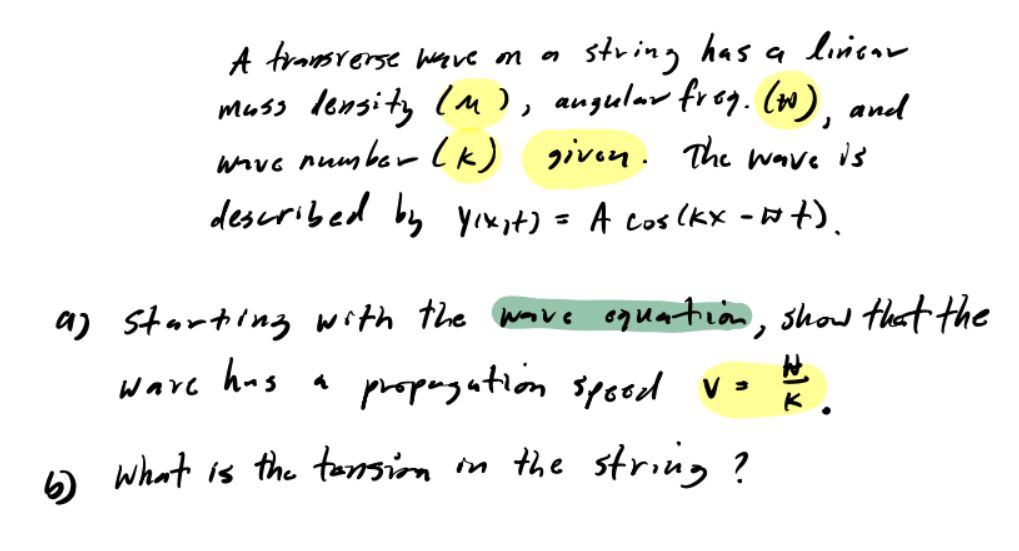 A transverse wave on a string has a linear
mass density (μ), angular freq. (ω), and
wave number (k) given. The wave is
described by y(x,t) = A cos(kx - ωt).
a) starting with the wave equation, show that the
wave has a propagation speed v = ω/k.
b) What is the tension in the string?